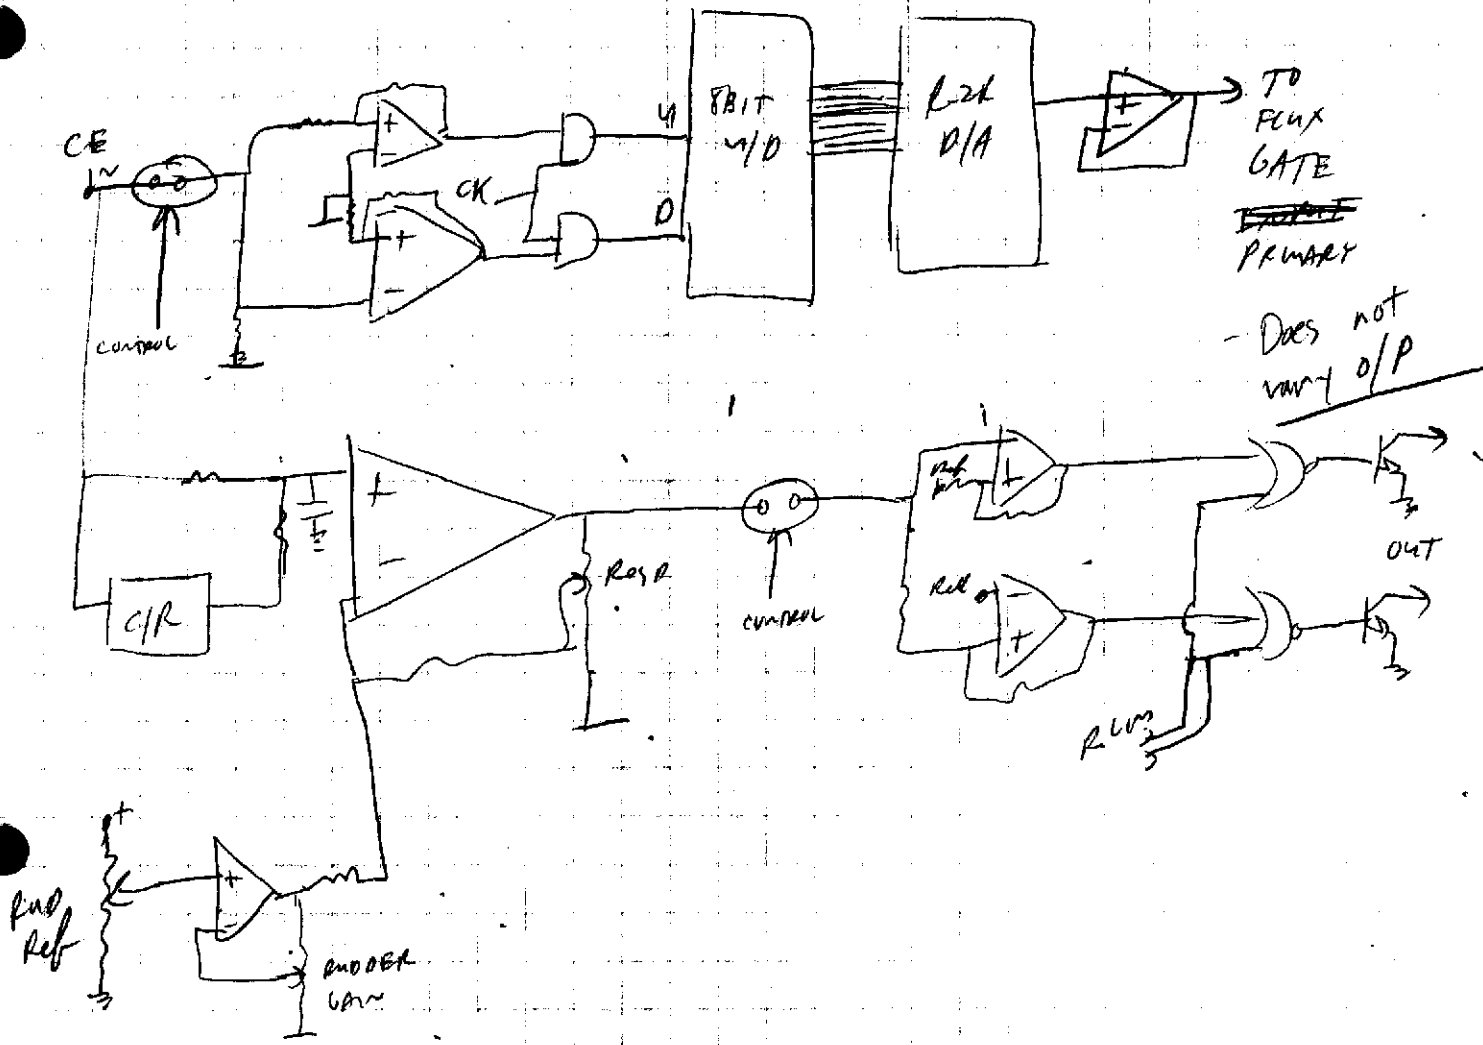 CE
~
CONTROL
+
-
+
-
CK
U
D
8BIT
U/D
R-2R
D/A
+
-
TO
FLUX
GATE
PRIMARY
- Does not
vary O/P
C/R
+
-
Resp
CONTROL
Ref
+
Ref
-
+
OUT
R. Lim
+
RUD
Ref
+
-
RUDDER
GAIN